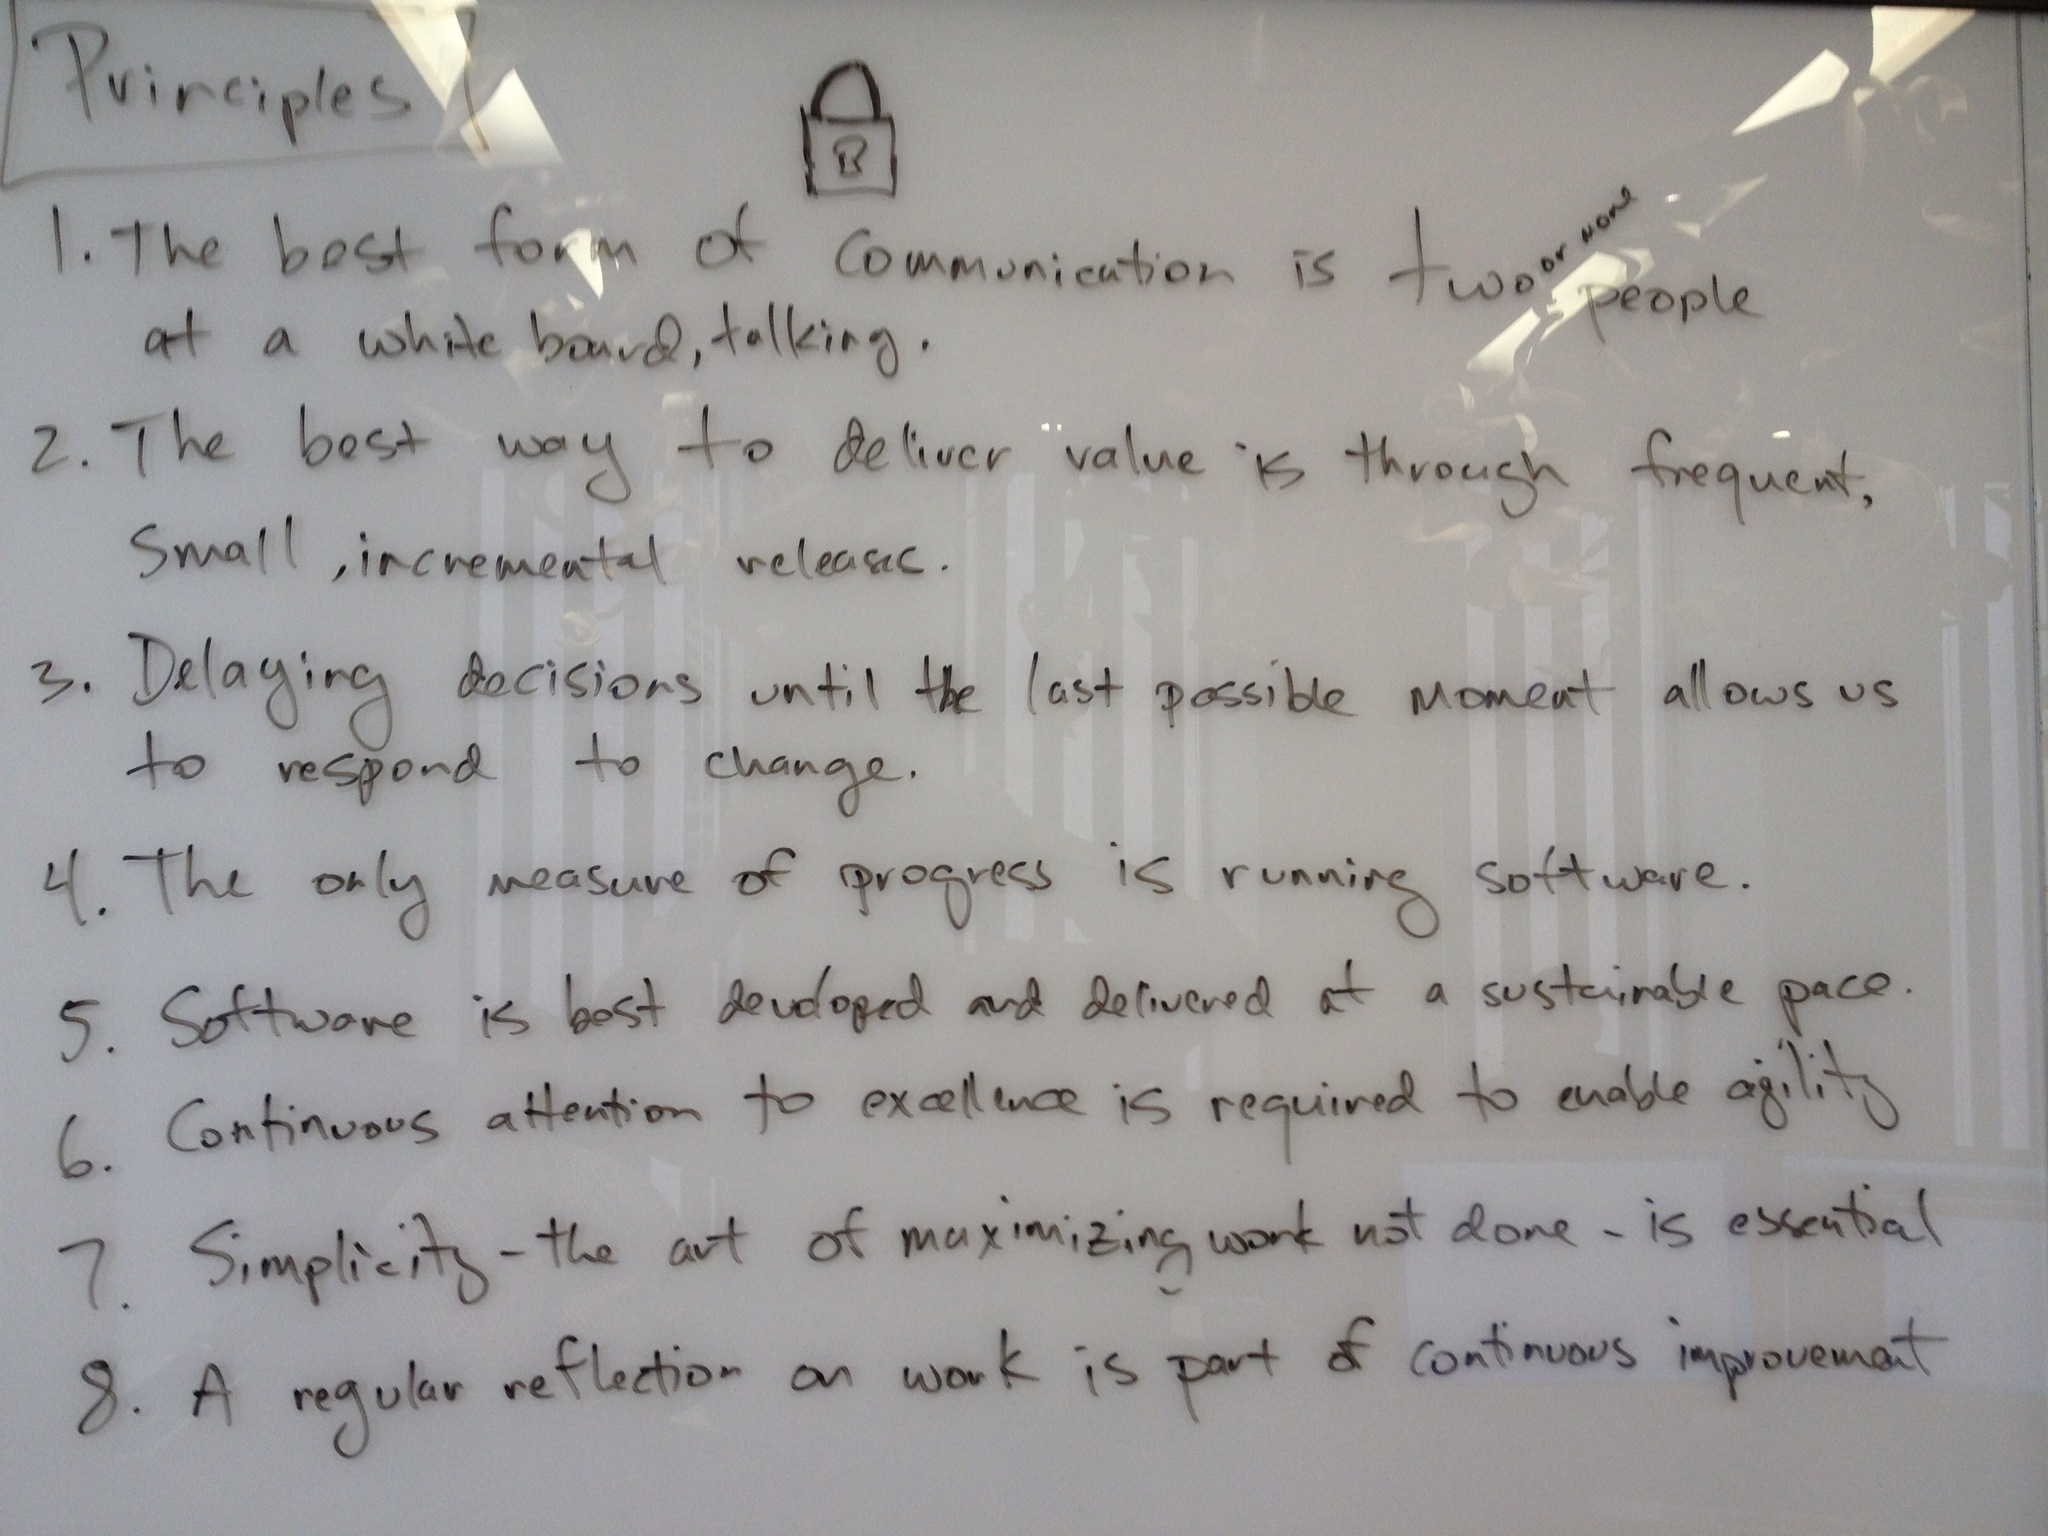 Principles
B
1. The best form of communication is two or more people
at a white board, talking.
2. The best way to deliver value is through frequent,
Small, incremental releases.
3. Delaying decisions until the last possible moment allows us
to respond to change.
4. The only measure of progress is running software.
5. Software is best developed and delivered at a sustainable pace.
6. Continuous attention to excellence is required to enable agility
7. Simplicity - the art of maximizing work not done - is essential
8. A regular reflection on work is part of continuous improvement